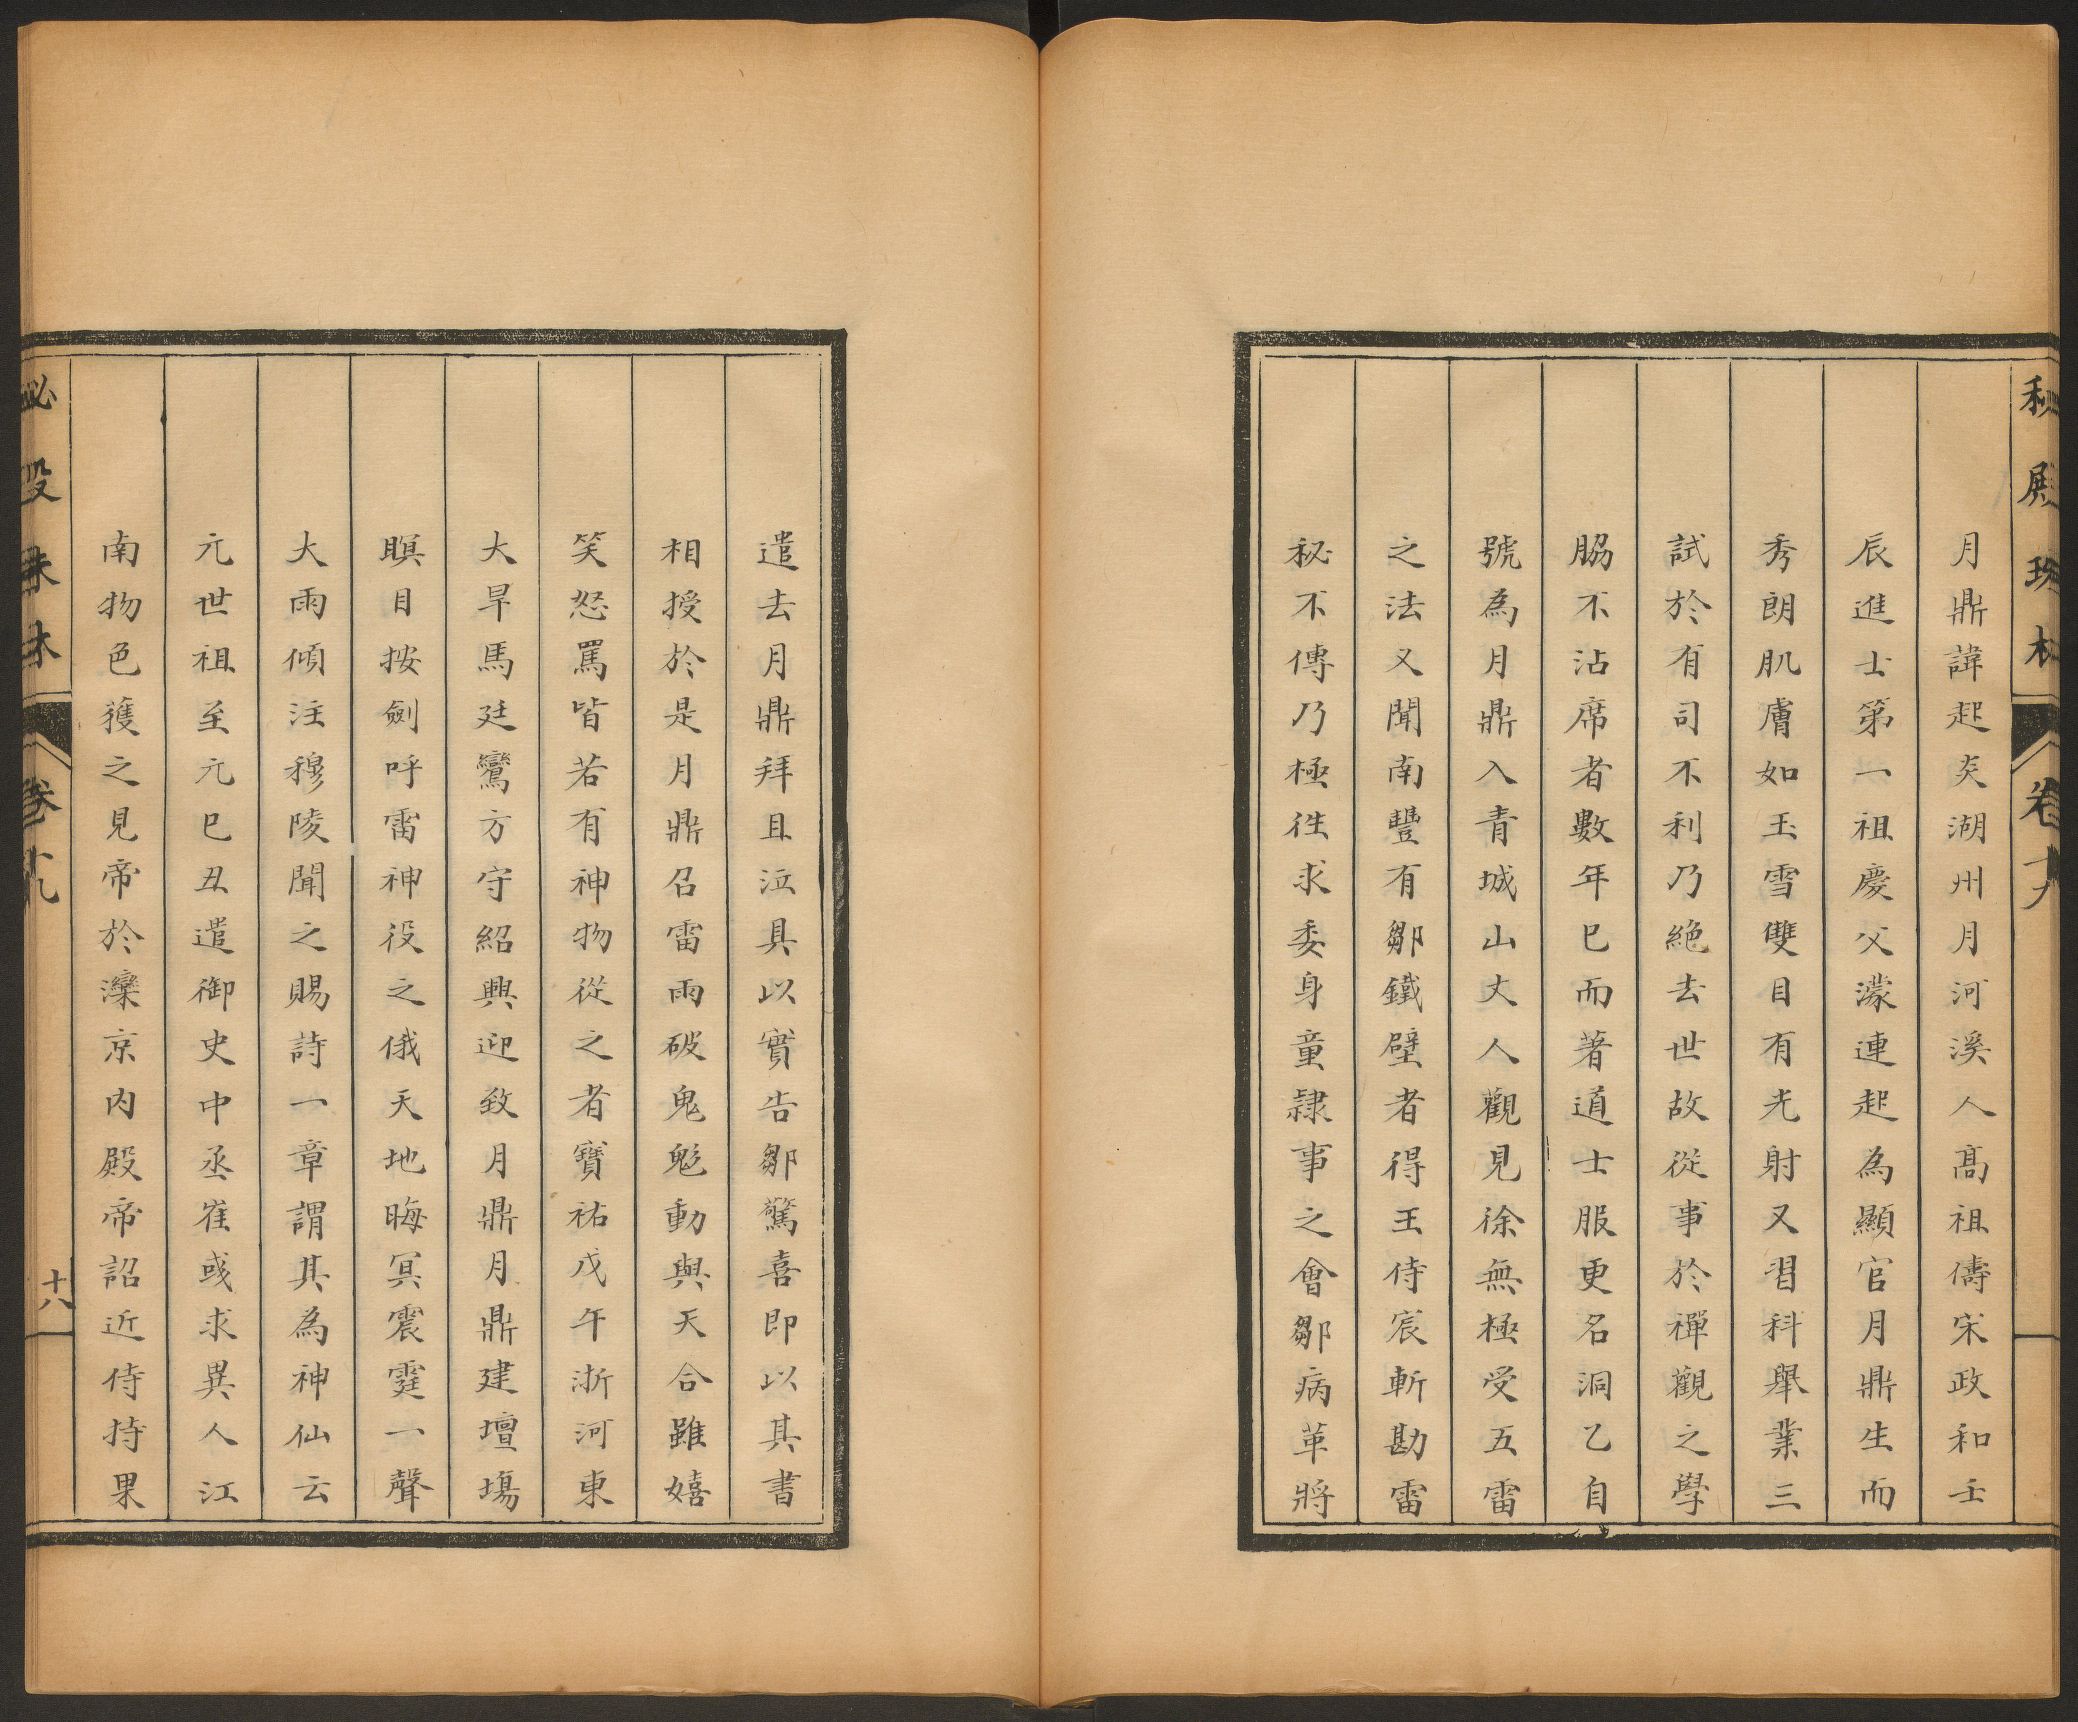 秘殿珠林 卷十九
月鼎諱起炎湖州月河溪人高祖儔宋政和壬
辰進士第一祖慶父濛連起為顯官月鼎生而
秀朗肌膚如玉雪雙目有光射又習科舉業三
試於有司不利乃絶去世故從事於禪觀之學
脇不沾席者數年巳而著道士服更名洞乙自
號為月鼎入青城山丈人觀見徐無極受五雷
之法又聞南豐有鄒鐵壁者得王侍宸斬勘雷
秘不傳乃極徃求委身童隷事之會鄒病革將
遣去月鼎拜且泣具以實告鄒驚喜即以其書
相授於是月鼎召雷雨破鬼魃動與天合雖嬉
笑怒罵皆若有神物從之者寶祐戊午浙河東
大旱馬廷鸞方守紹興迎致月鼎月鼎建壇塲
瞑目按劍呼雷神役之俄天地晦冥震霆一聲
大雨傾注穆陵聞之賜詩一章謂其為神仙云
元世祖至元巳丑遣御史中丞崔彧求異人江
南物色獲之見帝於灤京内殿帝詔近侍持果
秘殿珠林 卷十九 十八